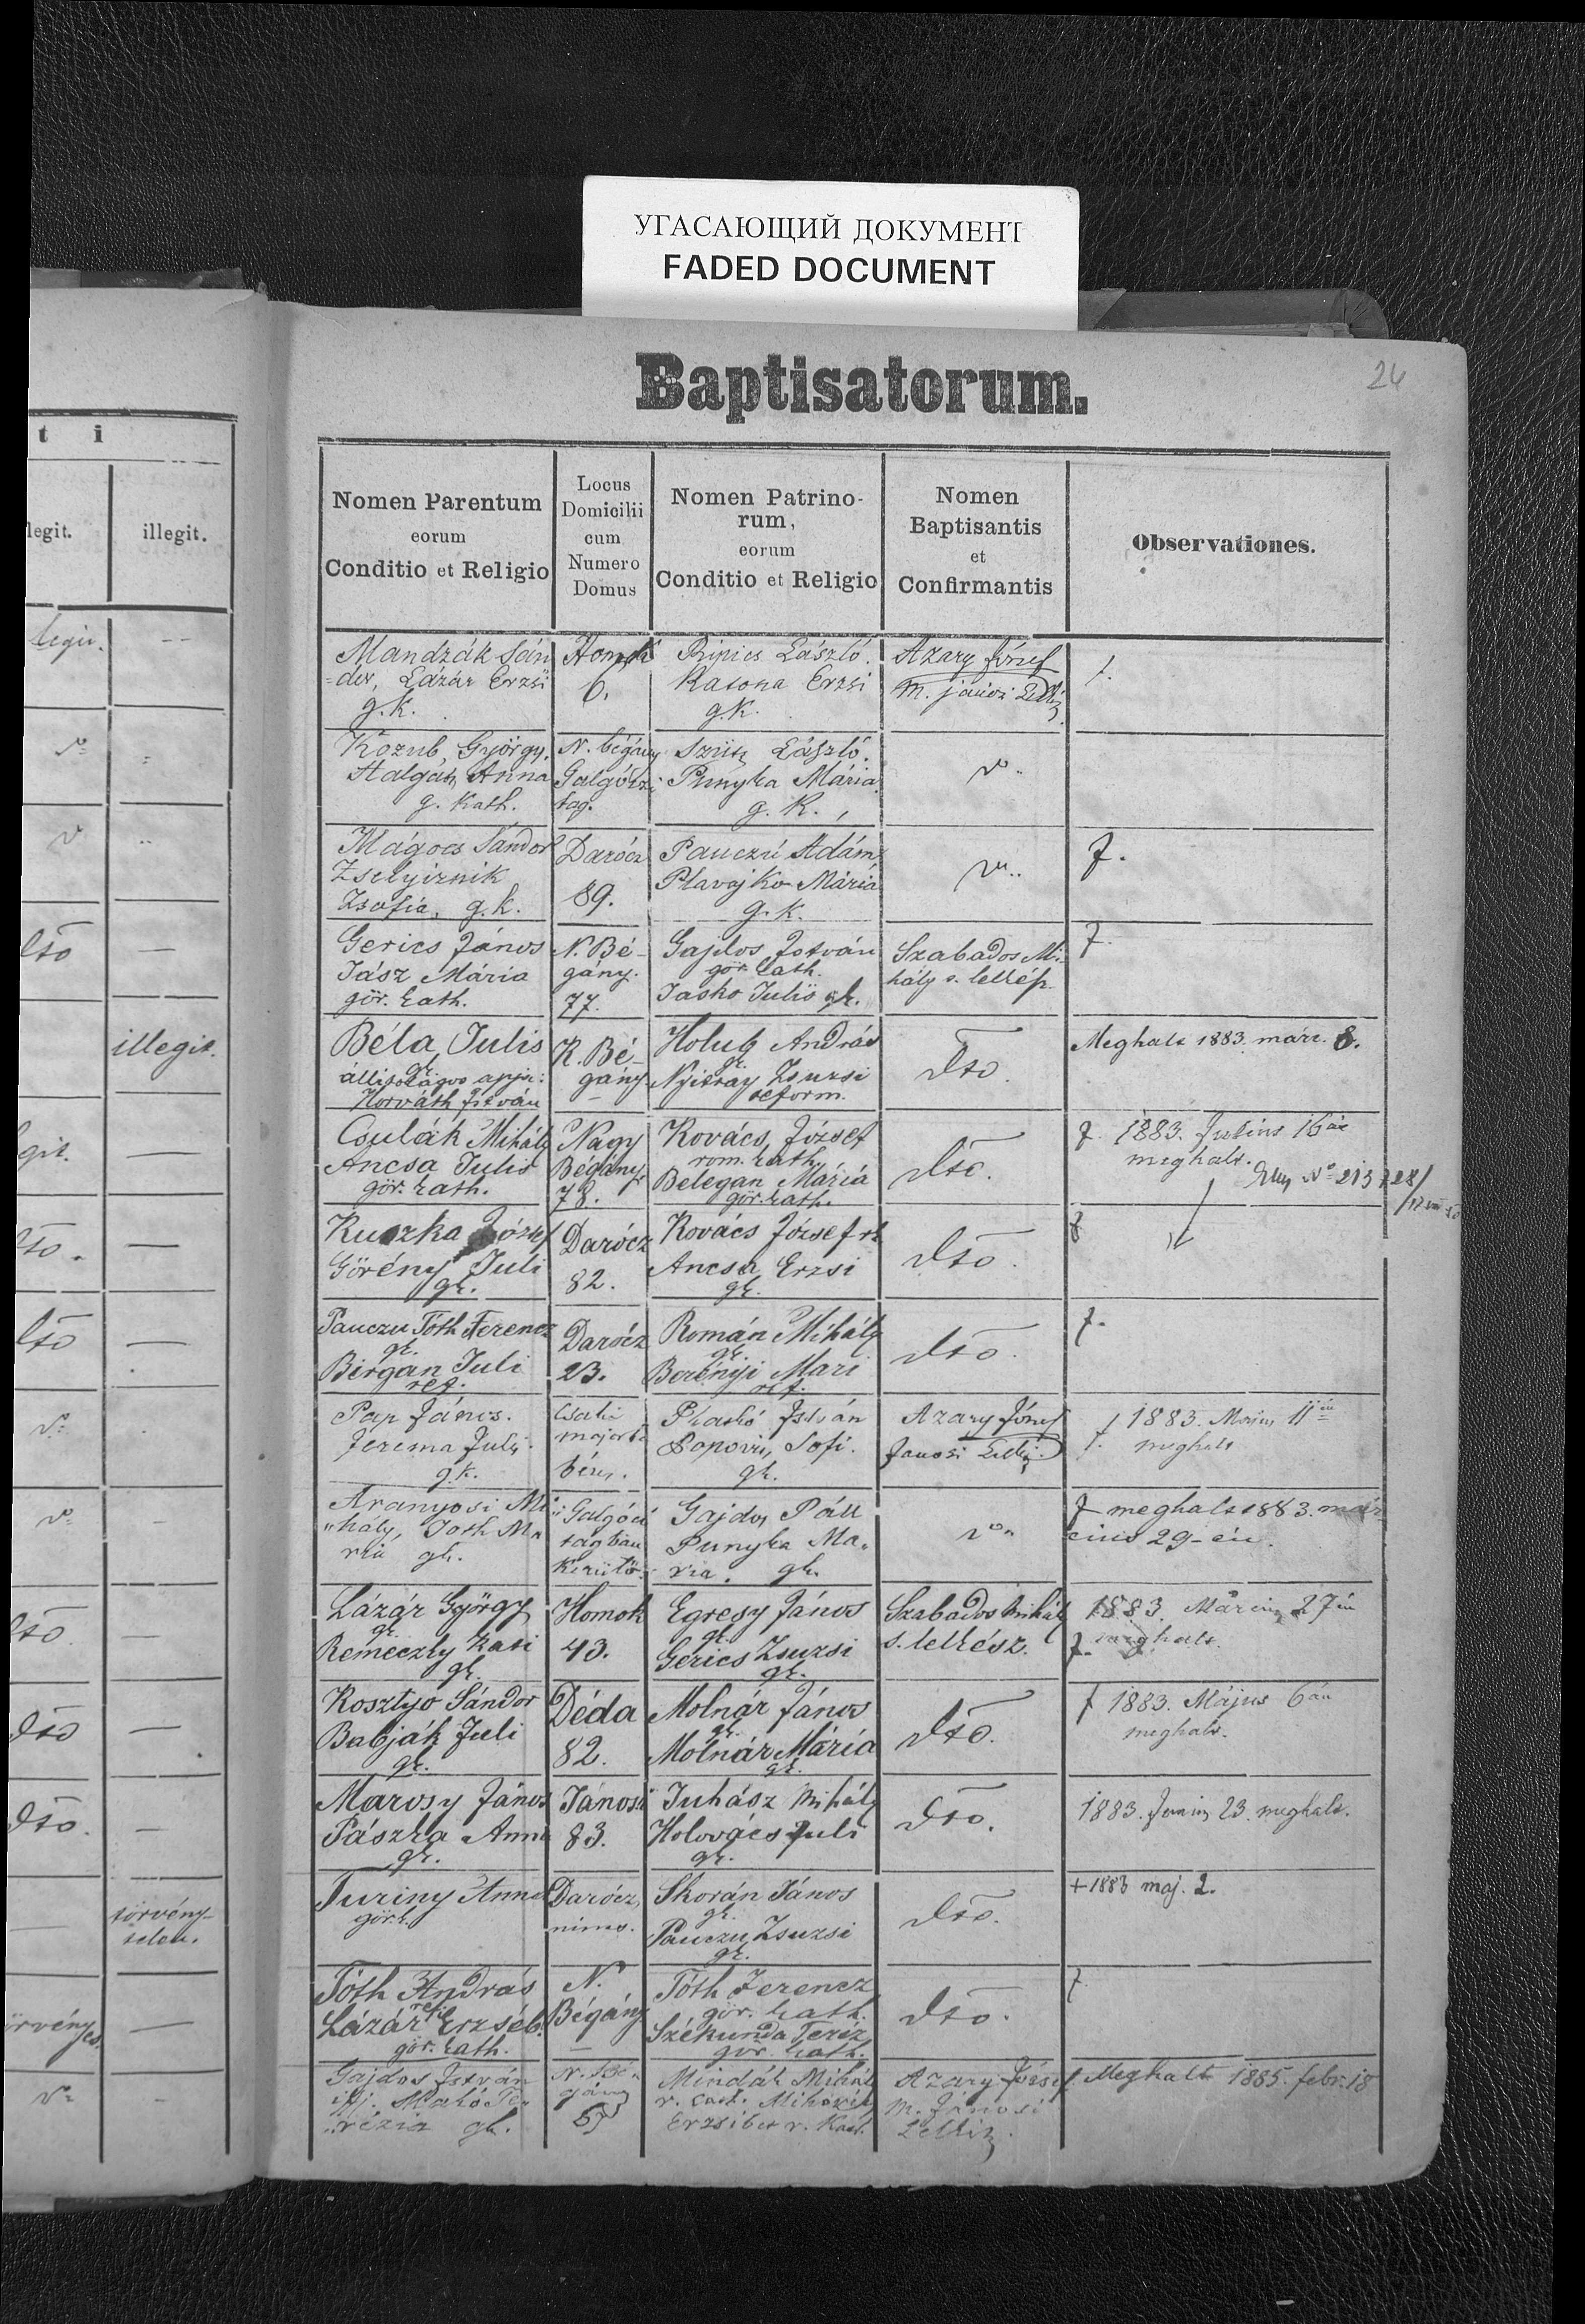 УГАСАЮЩИЙ ДОКУМЕНТ
FADED DOCUMENT
Baptisatorum.
24
t i
legit.
illegit.
Nomen Parentum
eorum
Conditio et Religio
Locus
Domicilii
cum
Numero
Domus
Nomen Patrino-
rum,
eorum
Conditio et Religio
Nomen
Baptisantis
et
Confirmantis
Observationes.
Mandzák Sán
=der, Lázár Erzsi
g.k.
Homok
6.
Ripics László.
Katona Erzsi
g.k.
Azary József
m. jánosi
Kozub György,
Anna
g. Kath.
N. bégány
tag.
Szüts László.
Punyka Mária
g. K.
Mágocs Sándor
Zselyiznik
Zsofia, g.k.
Darócz
89.
Pauczú Adám
Plavajko Mária
g.k.
dto
Gerics János
Jász Mária
gör. kath.
N. Bé-
gány.
77.
Gajdos István
gör. kath.
Jasko Julis gk.
Szabados Mi-
hály s. lelkész
illegit.
Béla, Julis
gk.
állitólagos apja:
Horváth István
K. Bé-
gány
Holub András
gk.
Nyitray Zsuzsi
reform.
dto.
Meghalt 1883. márc. 8.
Csulák Mihály
Ancsa Julis
gör. kath.
Nagy
Bégány.
78.
Kovács József
rom. kath.
Belegan Mária
gör. kath.
dto.
1883. Julius 16án
meghalt.
Kuszka József
Görény Juli
gk.
Darócz
82.
Kovács József rk
Ancsa Erzsi
gk.
dto.
dto
Pauczu Tóth Ferencz
gk.
Birgan Juli
ref.
Darócz
23.
Román Mihály
gk.
Berényi Mari
ref.
dto.
Pap János.
Jerema Juli
g.k.
Csatá
majorb
béres.
István
Popovits Sofi.
gk.
Azary József
Janosi
1883. 11én
meghalt
Aranyosi Mi
"hály, Toth Ma
ria gk.
tagban
Kerülö
Gajdos Páll
Punyka Ma„
ria. gk.
meghalt 1883. már
cius 29-én.
Lázár György
gk.
Remeczky Kati
gk.
Homok
43.
Egresy János
gk.
Gerics Zsuzsi
gk.
Szabados Mihály
s. lelkész.
1883. 27én
meghalt.
dto
Kosztyo Sándor
Babják Juli
gk.
Déda
82.
Molnár János
gk.
Molnár Mária
gk.
dto.
1883. Május 6án
meghalt.
dto.
Marosy János
Pászka Anna
gk.
Jánosi
83.
Juhász Mihály
Holovács Juli
gk.
dto.
1883. Junius 23. meghalt.
törvény-
telen.
Turiny Anna
gör. k.
Darócz,
nincs.
Skorán János
gk.
Pauczu Zsuzsi
gk.
dto.
+ 1883 maj. 2.
Tóth András
ref.
Lázár Erzséb.
gör. kath.
N.
Bégány
Tóth Ferencz
gör. kath.
Székunda Teréz
gör. kath.
dto.
Gajdos István
ifj. Makó Te„
„rézia gk.
N. Bé„
gány
Mindák Mihály
r. cath.
Erzsibet r. Kath.
Azary József
m. Jánosi
Lelkész.
Meghalt 1885. febr. 18